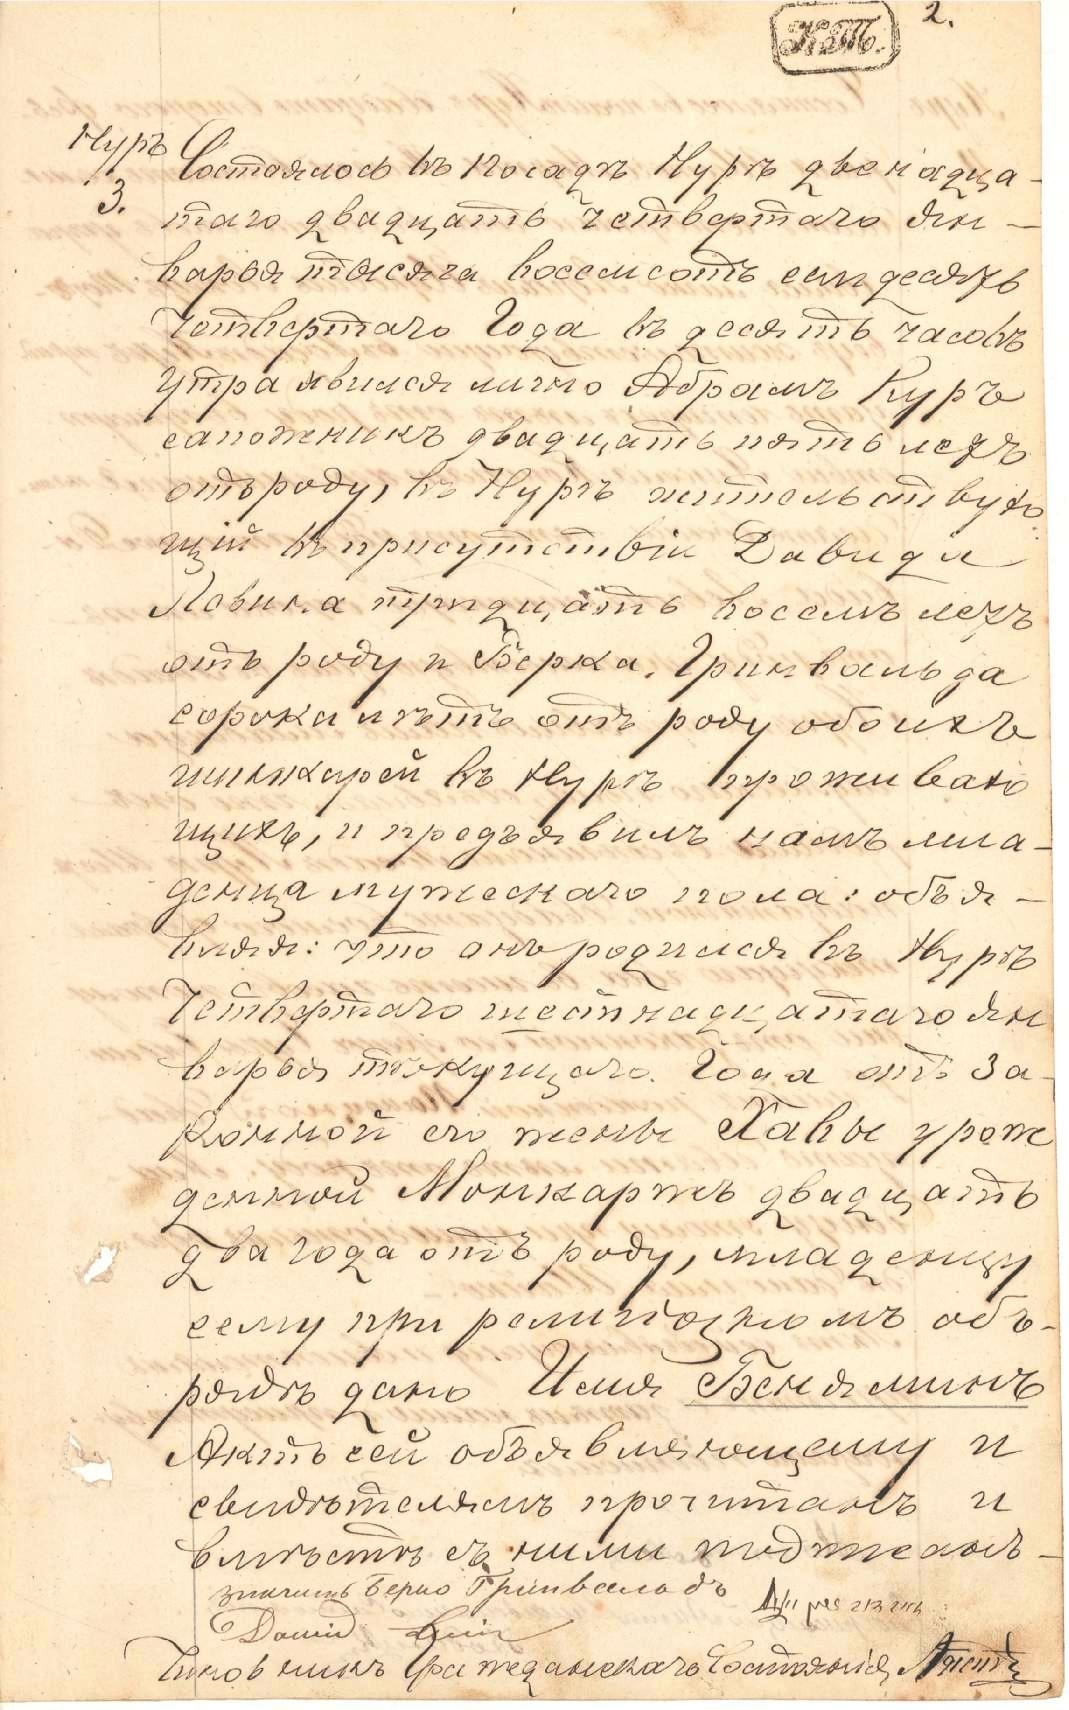 К.Т. 2.
Нуръ
3.
Состоялось въ посадѣ Нурѣ двенадца-
таго двадцать четвертаго Ян-
варья тысяча восемсотъ семдесятъ
четвертаго Года въ десять часовъ
утра явился лично Абрамъ Куръ
сапожникъ двадцать пять летъ
отъ роду, въ Нурѣ жительствую-
щій въ присутствіи Давида
Левина тридцать восемъ летъ
отъ роду и Берка Гринвальда
сорока лѣтъ отъ роду обоихъ
шинкарей въ Нурѣ проживаю
щихъ, и предъявилъ намъ мла-
денца мужескаго пола: объя-
вляя: что онъ родился въ Нурѣ
четвертаго шестнадцатаго Ян
варья текущаго Года отъ За-
конной его жены Хавы урож
денной Монкаржъ двадцать
два года отъ роду, младенцу
сему при религіозномъ объ-
рядѣ дано Имя Беняминъ
Актъ сей объявляющему и
свидѣтелямъ прочитанъ и
вмѣстѣ съ ними подписанъ-
значитъ Берко Гринвальдъ
Dawid
Чиновникъ Гражданскаго Состоянія